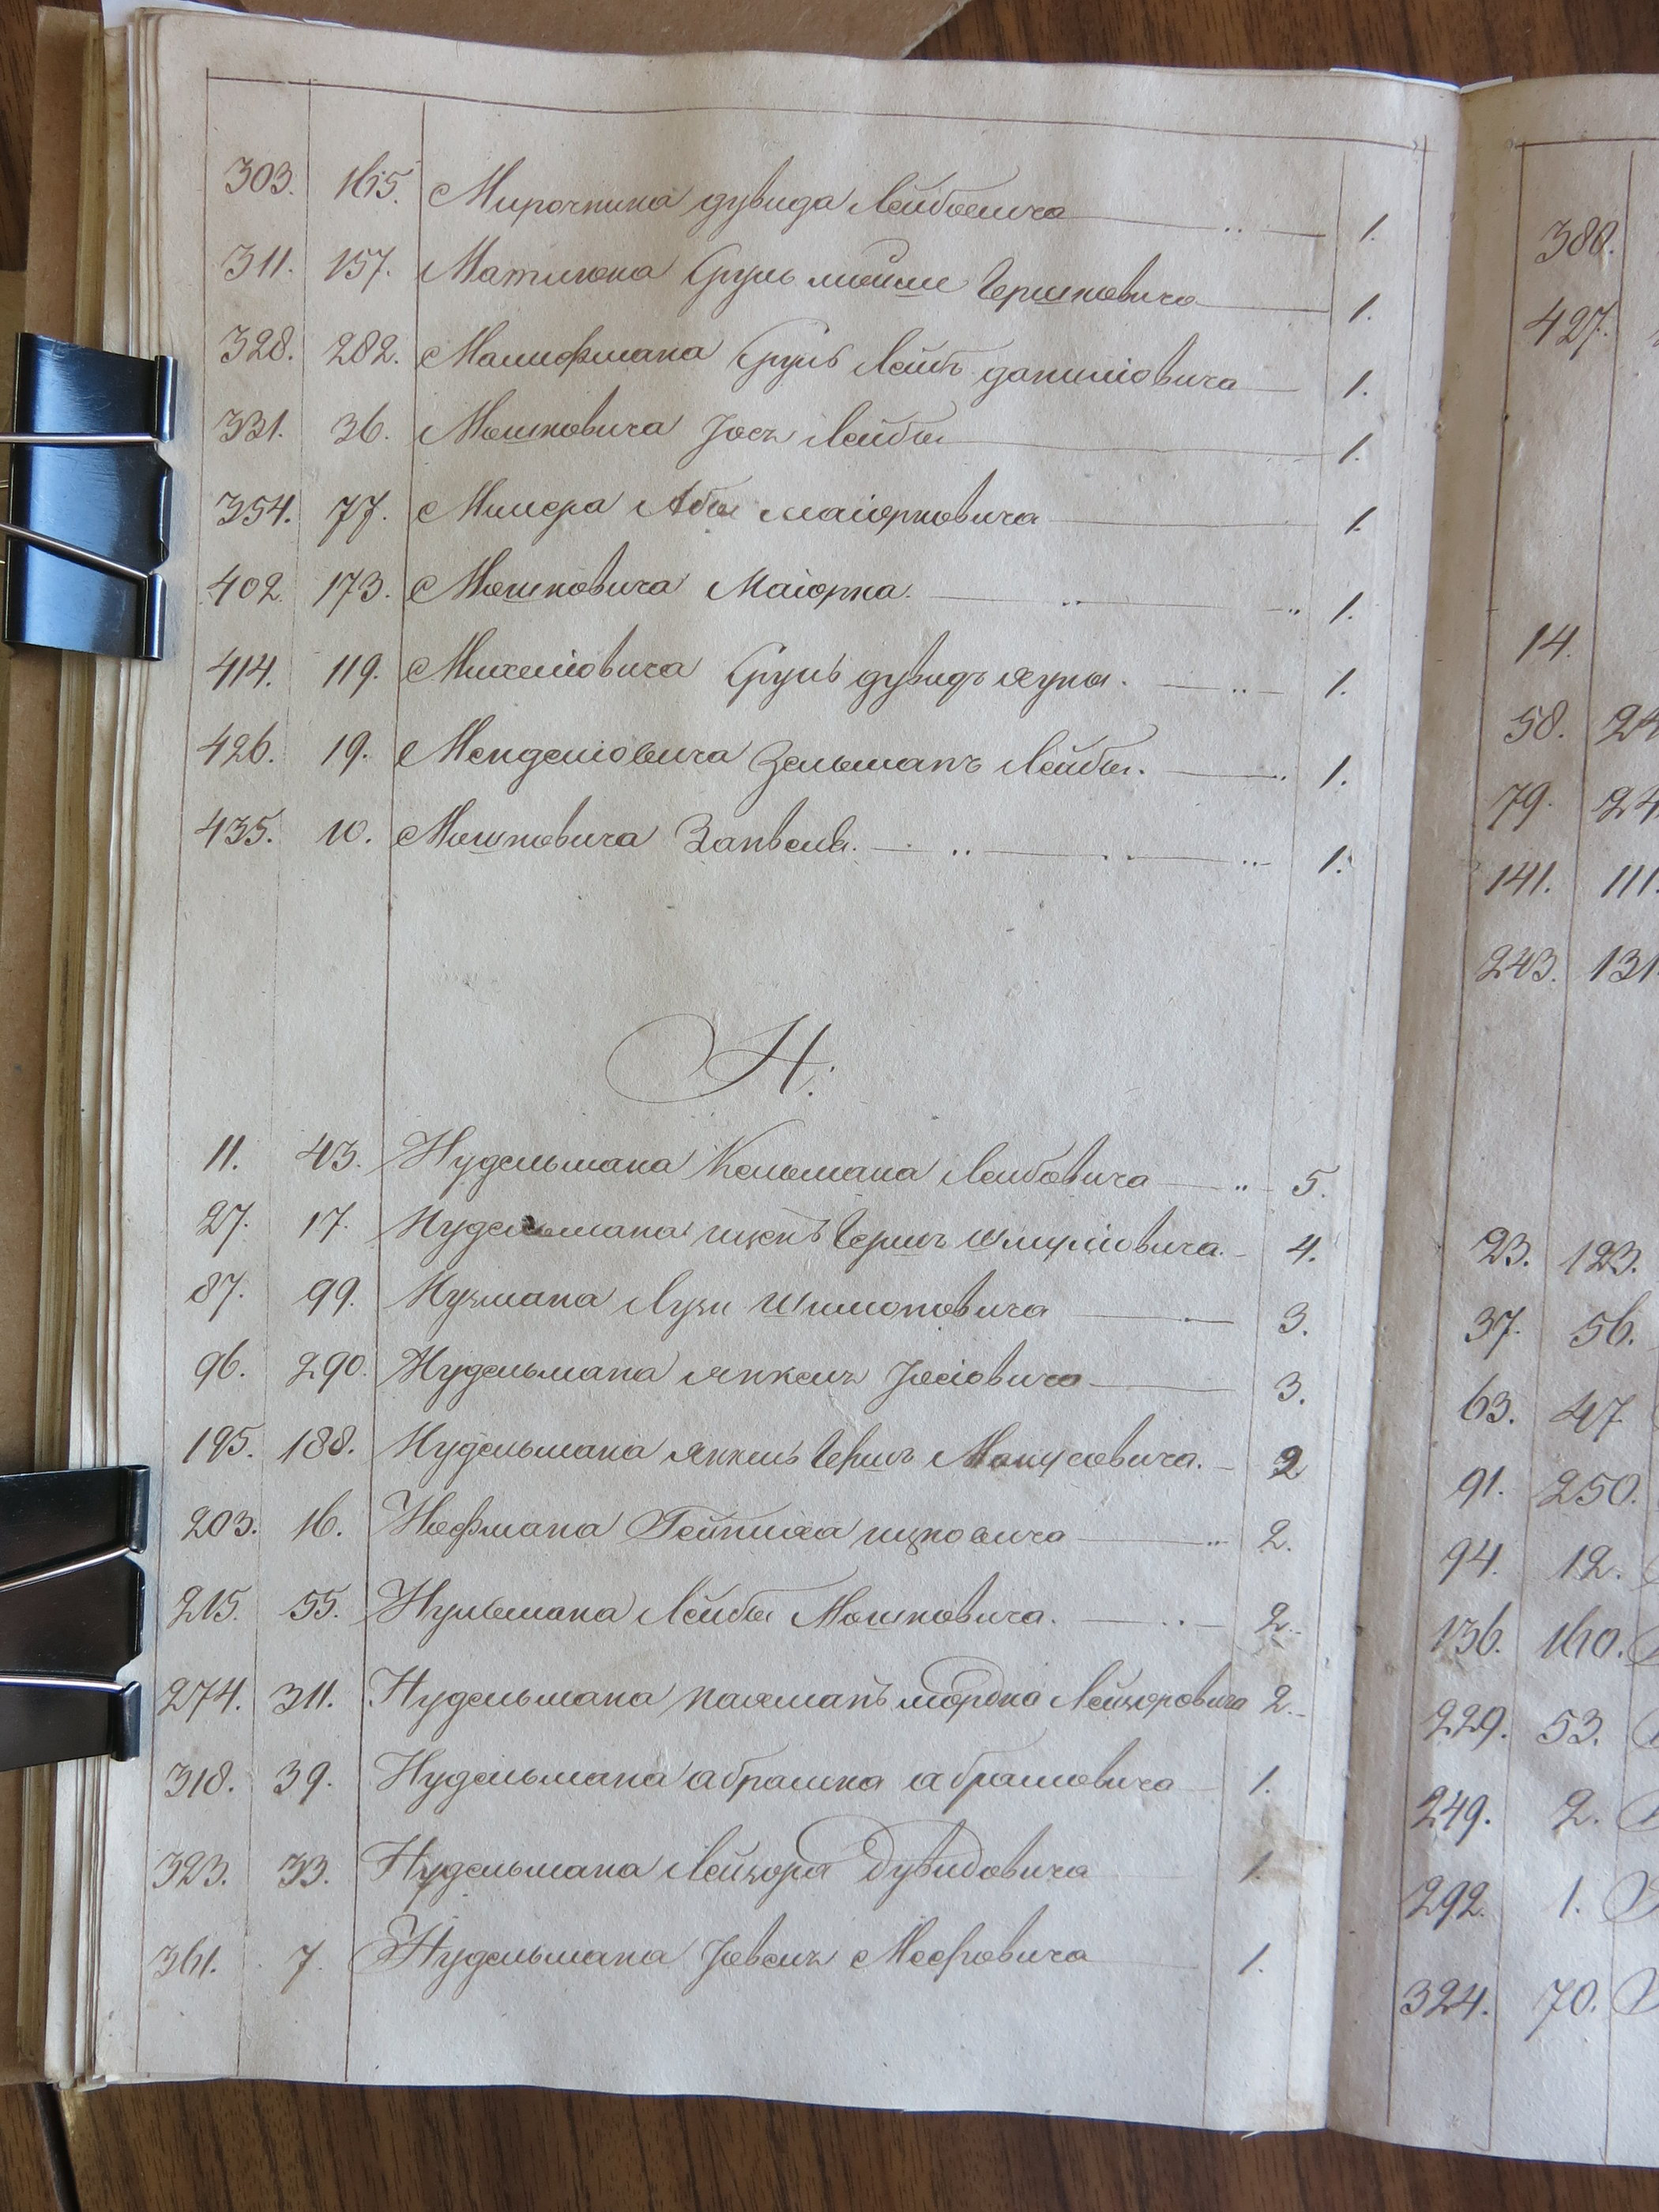 303. 165. Мирочника дувида Лейбовича 1.
311. 157. Матлюка Сруль мойше Гершковича 1.
328. 282. Малифмана Сруль Лейбъ даниліовича 1.
331. 36. Мошковича Іось Лейбы 1.
354. 77. Милера Абы маіорковича 1.
402. 173. Мошковича Маіорка. 1.
414. 119. Михеліовича Сруль дувидъ 1.
426. 19. Менделіовича Зельманъ Лейбы. 1.
435. 10. Мошковича Занвель. 1.
Н:
11. 43. Нудельмана Кельмана Лейбовича 5.
27. 17. Нудельмана ицекъ Гершъ шмуліовича. 4.
87. 99. Нузмана Лузи Шимоновича 3.
96. 290. Нудельмана янкель Іосіовича 3.
195. 188. Нудельмана янкель Гершъ Манусовича. 2
203. 16. Нефмана ицковича 2.
215. 55. Нульмана Лейбы Мошковича. 2.
274. 311. Нудельмана нахманъ мордко Лейзоровича 2.
318. 39. Нудельмана абрамка абрамовича 1.
323. 33. Нудельмана Лейзора Дувидовича 1.
361. 7. Нудельмана Іовель Мееровича 1.
380.
427.
14.
58. 24
79. 24
141. 111.
243. 131
23. 123.
37. 56.
63. 47.
91. 250.
94. 12.
136. 160.
229. 53.
249. 2.
292. 1.
324. 70.